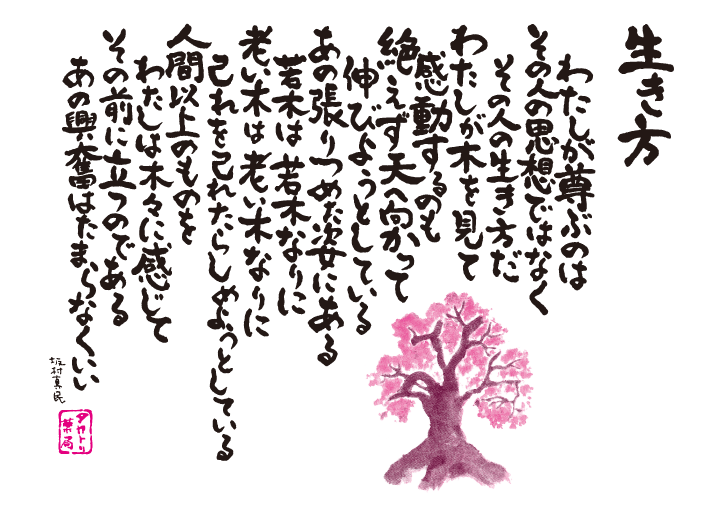 生き方
わたしが尊ぶのは
その人の思想ではなく
その人の生き方だ
わたしが木を見て
感動するのも
絶えず天へ向かって
伸びようとしている
あの張りつめた姿にある
若木は若木なりに
老い木は老い木なりに
己れを己れたらしめようとしている
人間以上のものを
わたしは木々に感じて
その前に立つのである
あの興奮はたまらなくいい
坂村真民
タカトリ
薬局